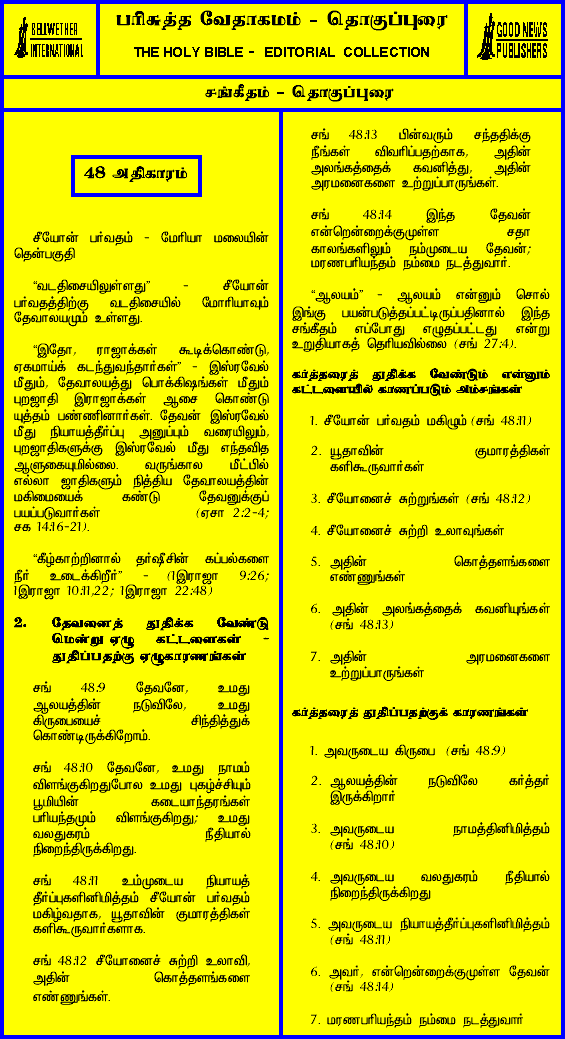 BELLWETHER
INTERNATIONAL
பரிசுத்த வேதாகமம் - தொகுப்புரை
THE HOLY BIBLE - EDITORIAL COLLECTION
GOOD NEWS
PUBLISHERS
சங்கீதம் - தொகுப்புரை
48 அதிகாரம்
சீயோன் பர்வதம் - மேரியா மலையின்
தென்பகுதி
“வடதிசையிலுள்ளது” - சீயோன்
பர்வதத்திற்கு வடதிசையில் மோரியாவும்
தேவாலயமும் உள்ளது.
“இதோ, ராஜாக்கள் கூடிக்கொண்டு,
ஏகமாய்க் கடந்துவந்தார்கள்” - இஸ்ரவேல்
மீதும், தேவாலயத்து பொக்கிஷங்கள் மீதும்
புறஜாதி இராஜாக்கள் ஆசை கொண்டு
யுத்தம் பண்ணினார்கள். தேவன் இஸ்ரவேல்
மீது நியாயத்தீர்ப்பு அனுப்பும் வரையிலும்,
புறஜாதிகளுக்கு இஸ்ரவேல் மீது எந்தவித
ஆளுகையுமில்லை. வருங்கால மீட்பில்
எல்லா ஜாதிகளும் நித்திய தேவாலயத்தின்
மகிமையைக் கண்டு தேவனுக்குப்
பயப்படுவார்கள் (ஏசா 2:2-4;
சக 14:16-21).
“கீழ்காற்றினால் தர்ஷீசின் கப்பல்களை
நீர் உடைக்கிறீர்” - (1இராஜா 9:26;
1இராஜா 10:11,22; 1இராஜா 22:48)
2. தேவனைத் துதிக்க வேண்டு
மென்று ஏழு கட்டளைகள் -
துதிப்பதற்கு ஏழுகாரணங்கள்
சங் 48:9 தேவனே, உமது
ஆலயத்தின் நடுவிலே, உமது
கிருபையைச் சிந்தித்துக்
கொண்டிருக்கிறோம்.
சங் 48:10 தேவனே, உமது நாமம்
விளங்குகிறதுபோல உமது புகழ்ச்சியும்
பூமியின் கடையாந்தரங்கள்
பரியந்தமும் விளங்குகிறது; உமது
வலதுகரம் நீதியால்
நிறைந்திருக்கிறது.
சங் 48:11 உம்முடைய நியாயத்
தீர்ப்புகளினிமித்தம் சீயோன் பர்வதம்
மகிழ்வதாக, யூதாவின் குமாரத்திகள்
களிகூருவார்களாக.
சங் 48:12 சீயோனைச் சுற்றி உலாவி,
அதின் கொத்தளங்களை
எண்ணுங்கள்.
சங் 48:13 பின்வரும் சந்ததிக்கு
நீங்கள் விவரிப்பதற்காக, அதின்
அலங்கத்தைக் கவனித்து, அதின்
அரமனைகளை உற்றுப்பாருங்கள்.
சங் 48:14 இந்த தேவன்
என்றென்றைக்குமுள்ள சதா
காலங்களிலும் நம்முடைய தேவன்;
மரணபரியந்தம் நம்மை நடத்துவார்.
“ஆலயம்” - ஆலயம் என்னும் சொல்
இங்கு பயன்படுத்தப்பட்டிருப்பதினால் இந்த
சங்கீதம் எப்போது எழுதப்பட்டது என்று
உறுதியாகத் தெரியவில்லை (சங் 27:4).
கர்த்தரைத் துதிக்க வேண்டும் என்னும்
கட்டளையில் காணப்படும் அம்சங்கள்
1. சீயோன் பர்வதம் மகிழும் (சங் 48:11)
2. யூதாவின் குமாரத்திகள்
களிகூருவார்கள்
3. சீயோனைச் சுற்றுங்கள் (சங் 48:12)
4. சீயோனைச் சுற்றி உலாவுங்கள்
5. அதின் கொத்தளங்களை
எண்ணுங்கள்
6. அதின் அலங்கத்தைக் கவனியுங்கள்
(சங் 48:13)
7. அதின் அரமனைகளை
உற்றுப்பாருங்கள்
கர்த்தரைத் துதிப்பதற்குக் காரணங்கள்
1. அவருடைய கிருபை (சங் 48:9)
2. ஆலயத்தின் நடுவிலே கர்த்தர்
இருக்கிறார்
3. அவருடைய நாமத்தினிமித்தம்
(சங் 48:10)
4. அவருடைய வலதுகரம் நீதியால்
நிறைந்திருக்கிறது
5. அவருடைய நியாயத்தீர்ப்புகளினிமித்தம்
(சங் 48:11)
6. அவர், என்றென்றைக்குமுள்ள தேவன்
(சங் 48:14)
7. மரணபரியந்தம் நம்மை நடத்துவார்